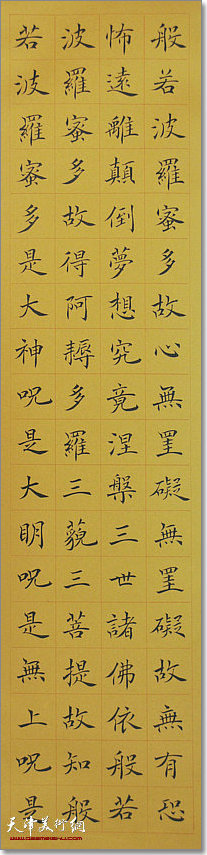 般若波羅蜜多故心無罣礙無罣礙故無有恐
怖遠離顛倒夢想究竟涅槃三世諸佛依般若
波羅蜜多故得阿耨多羅三藐三菩提故知般
若波羅蜜多是大神呪是大明呪是無上呪是
天津美術網